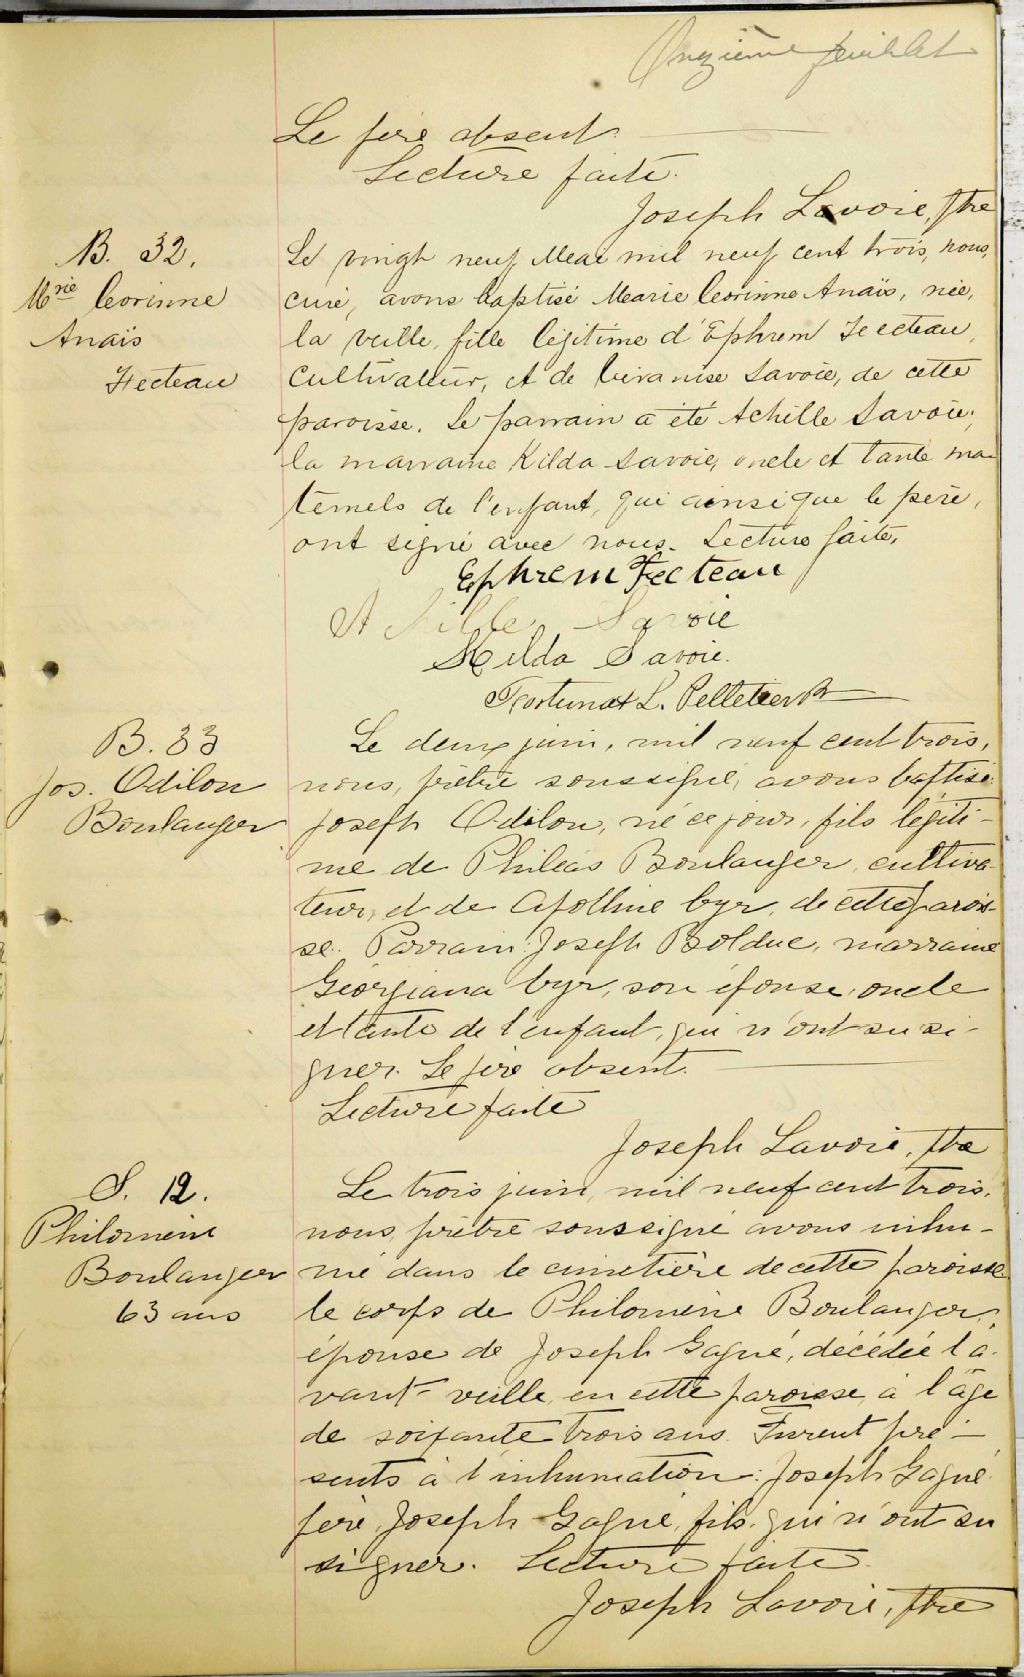 Onzième feuillet
Le père absent.
Lecture faite.
Joseph Lavoie, Ptre
B. 32.
Mrie Corinne
Anaïs
Fecteau
Le vingt neuf Mai mil neuf cent trois, nous,
curé, avons baptisé Marie Corinne Anaïs, née,
la veille, fille légitime d'Ephrem Fecteau,
cultivateur, et de Céranise Savoie, de cette
paroisse. Le parrain a été Achille Savoie,
la marraine Kilda Savoie, oncle et tante ma-
ternels de l'enfant, qui ainsi que le père,
ont signé avec nous. Lecture faite,
Ephrem Fecteau
Achille Savoie
Kilda Savoie.
Fortunat L. Pelletier Ptr
B. 33
Jos. Odilon
Boulanger
Le deux juin, mil neuf cent trois,
nous, prêtre soussigné, avons baptisé
Joseph Odilon, né ce jour, fils légiti-
me de Philéas Boulanger, cultiva-
teur, et de Apolline Cyr, de cette parois-
se. Parrain: Joseph Bolduc, marraine
Géorgiana Cyr, son épouse, oncle
et tante de l'enfant, qui n'ont su si-
gner. Le père absent.
Lecture faite
Joseph Lavoie, Ptre
S. 12.
Philomène
Boulanger
63 ans
Le trois juin, mil neuf cent trois,
nous, prêtre soussigné avons inhu-
mé dans le cimetière de cette paroisse
le corps de Philomène Boulanger,
épouse de Joseph Gagné, décédée l'a-
vant-veille, en cette paroisse, à l'âge
de soixante trois ans. Furent pré-
sents à l'inhumation: Joseph Gagné
père, Joseph Gagné, fils, qui n'ont su
signer. Lecture faite.
Joseph Lavoie, Ptre